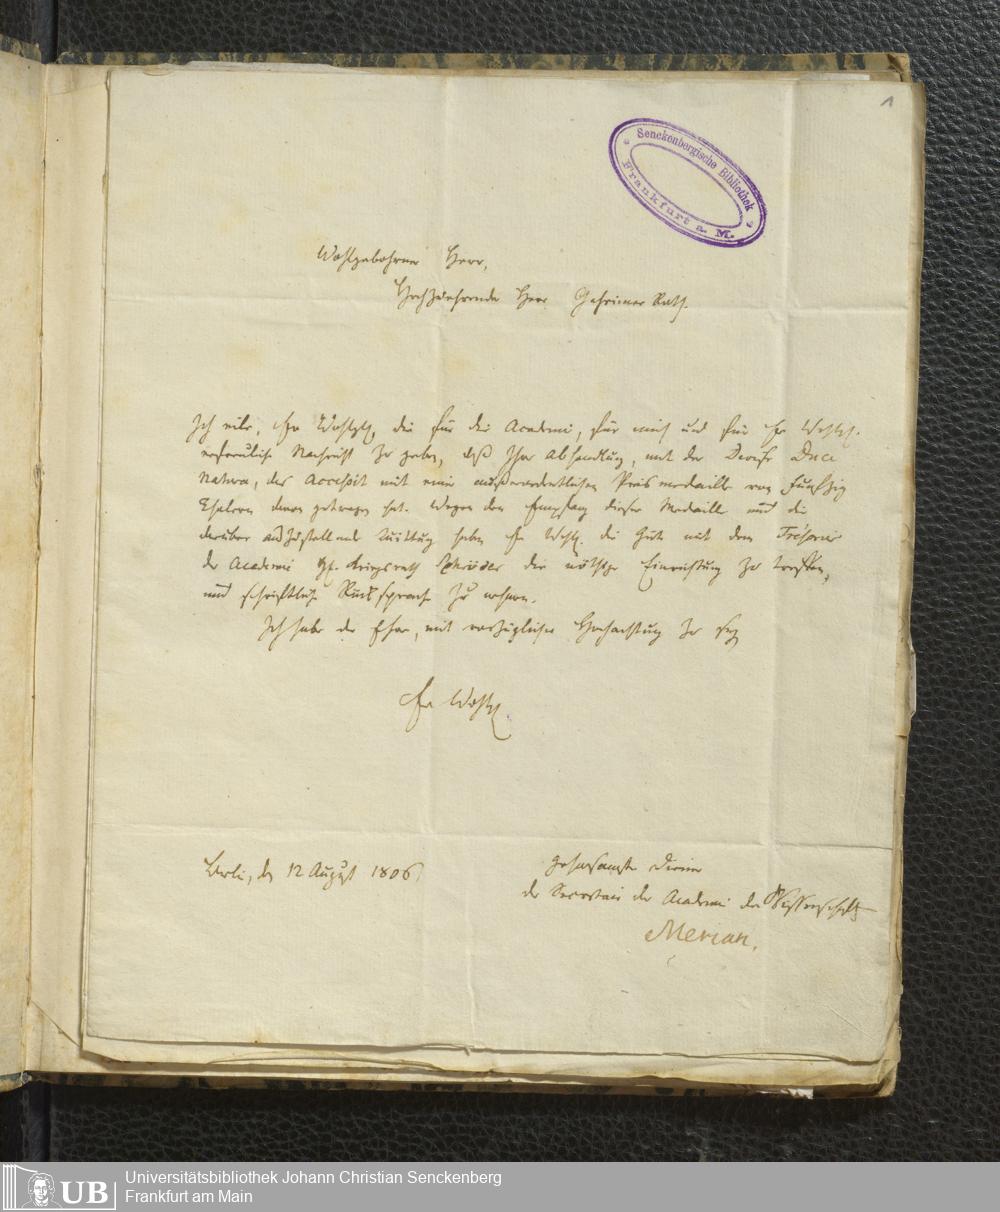 1
Senckenbergische Bibliothek
Frankfurt a. M.
Wohlgebohrner Herr,
Hochzuehrender Herr Geheimer Rath.
Ich eile, Ew Wohlgb. die für die Academie, für mich und für Ew Wohlgb.
erfreuliche Nachricht zu geben, daß Ihre Abhandlung, mit der Devise Duce
Natura, das Accessit mit einer außerordentlichen Preismedaille von Funfzig
Thalern davon getragen hat. Wegen des Empfang dieser Medaille und die
darüber auszustellende Quittung haben Ew Wohlg. die Güte mit dem Trésorier
der Academie Hr. Kriegsrath Schröder die nöthige Einrichtung zu treffen,
und schriftliche Rücksprache zu nehmen.
Ich habe die Ehre, mit vorzüglicher Hochachtung zu seyn
Ew Wohlgb.
Berlin, den 12 August 1806
gehorsamster Diener
der Secretair der Academie der Wissenschaften
Merian.
UB
Universitätsbibliothek Johann Christian Senckenberg
Frankfurt am Main